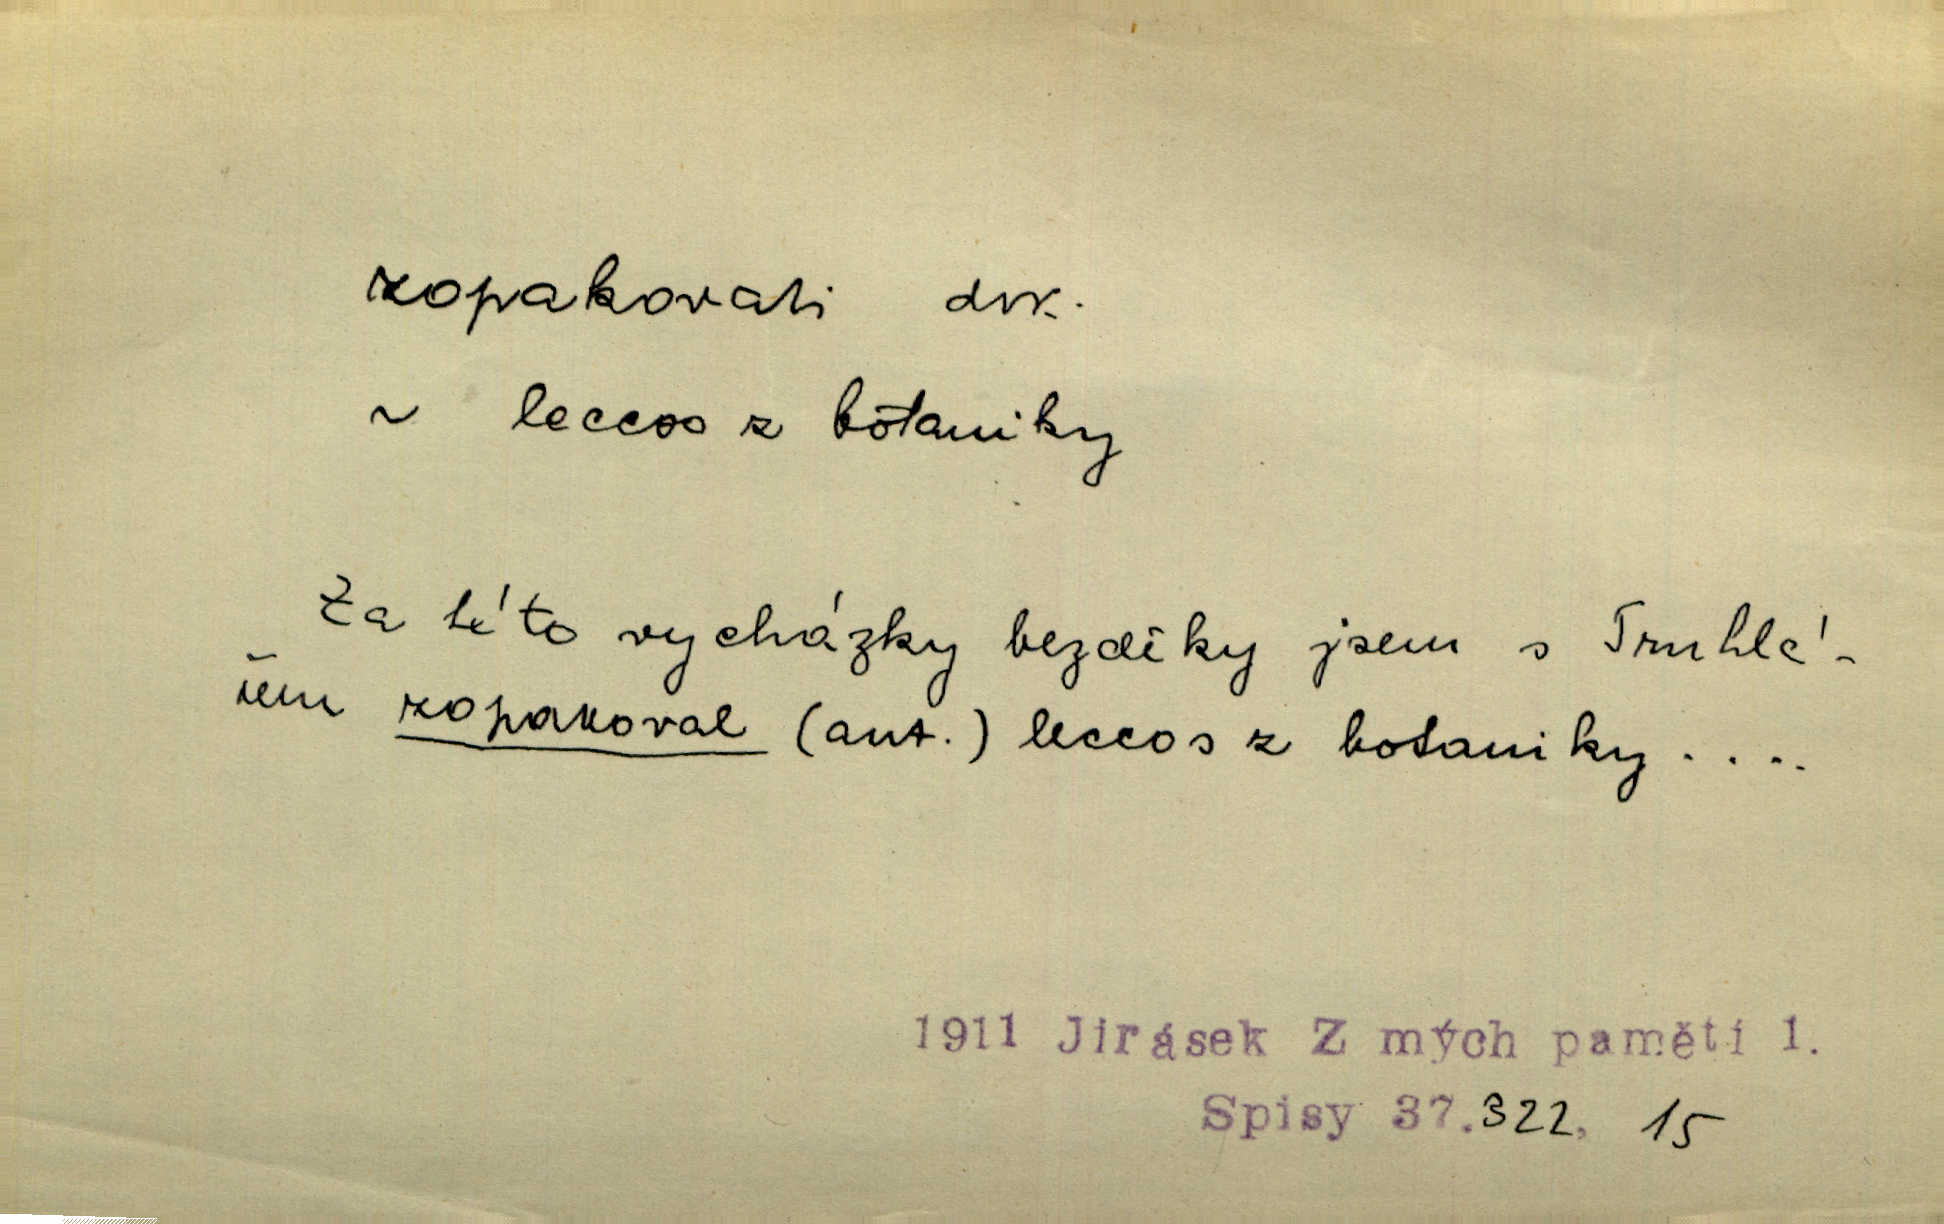 zopakovati dok.
~ leccos z botaniky
Za této vycházky bezděky jsem s Truhlá-
řem zopakoval (aut.) leccos z botaniky....
1911 Jirásek Z mých pamětí 1.
Spisy 37.322, 15